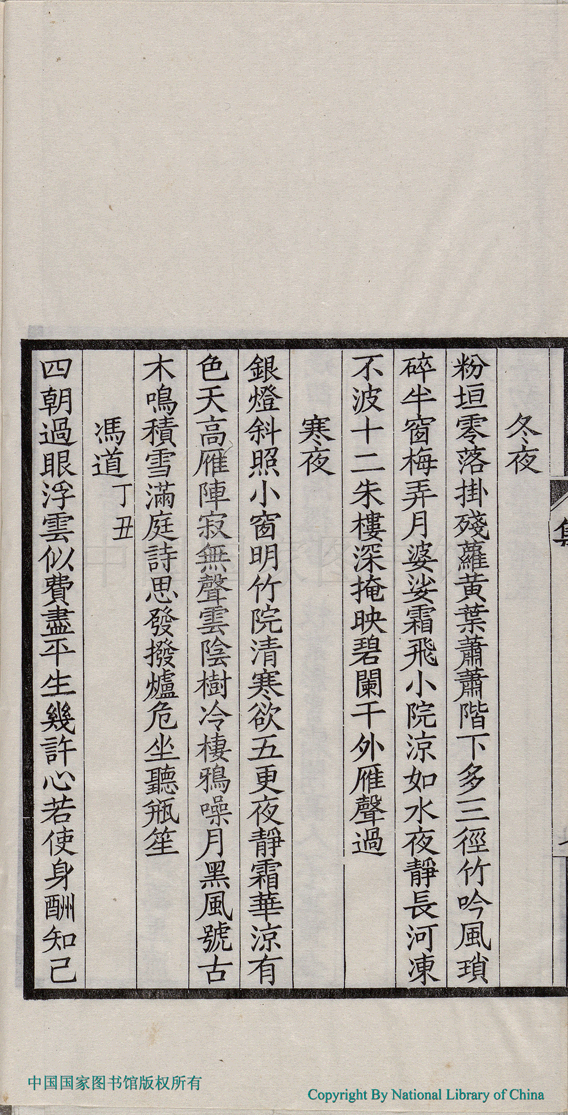 冬夜
粉垣零落掛殘蘿黃葉蕭蕭階下多三徑竹吟風瑣
碎半窗梅弄月婆娑霜飛小院涼如水夜靜長河凍
不波十二朱樓深掩映碧闌干外雁聲過
寒夜
銀燈斜照小窗明竹院清寒欲五更夜靜霜華涼有
色天高雁陣寂無聲雲陰樹冷棲鴉噪月黑風號古
木鳴積雪滿庭詩思發撥爐危坐聽瓶笙
馮道丁丑
四朝過眼浮雲似費盡平生幾許心若使身酬知己
中国国家图书馆版权所有
Copyright By National Library of China